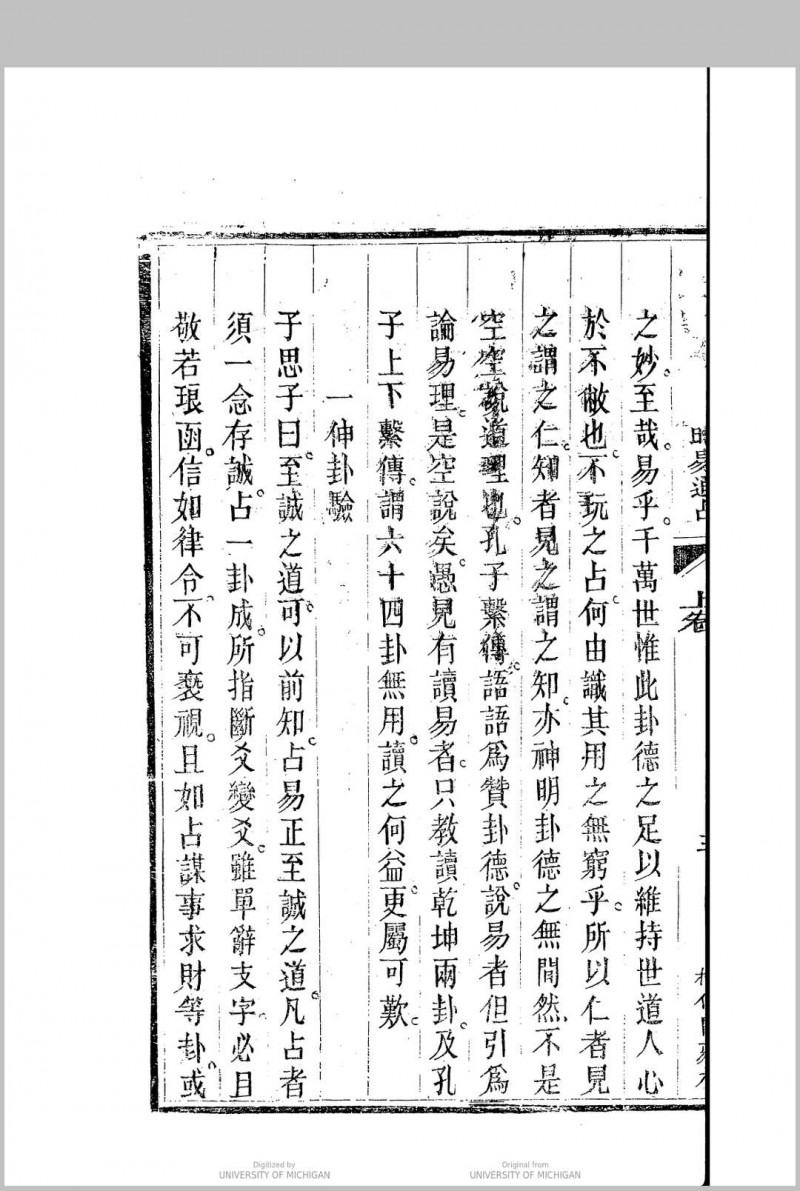 易通占
上卷
三
之妙。至哉。易乎。千萬世惟此卦德之足以維持世道人心
於不敝也。不玩之占。何由識其用之無窮乎。所以仁者見
之謂之仁。知者見之謂之知。亦神明卦德之無間然。不是
空空說道理也。孔子繫傳。語語爲贊卦德。說易者但引爲
論易理。是空說矣。愚見有讀易者。只教讀乾坤兩卦。及孔
子上下繫傳。謂六十四卦無用。讀之何益。更屬可歎。
一伸卦驗
子思子曰。至誠之道。可以前知。占易正至誠之道。凡占者
須一念存誠。占一卦成。所指斷爻變爻。雖單辭支字。必目
敬若琅函。信如律令。不可褻視。且如占謀事求財等卦。或
Digitized by
UNIVERSITY OF MICHIGAN
Original from
UNIVERSITY OF MICHIGAN